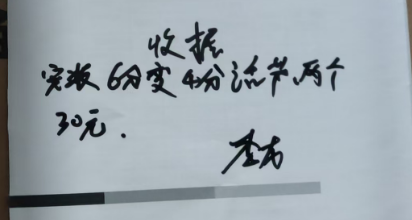 收据
实收6分变4分活节两个
30元.